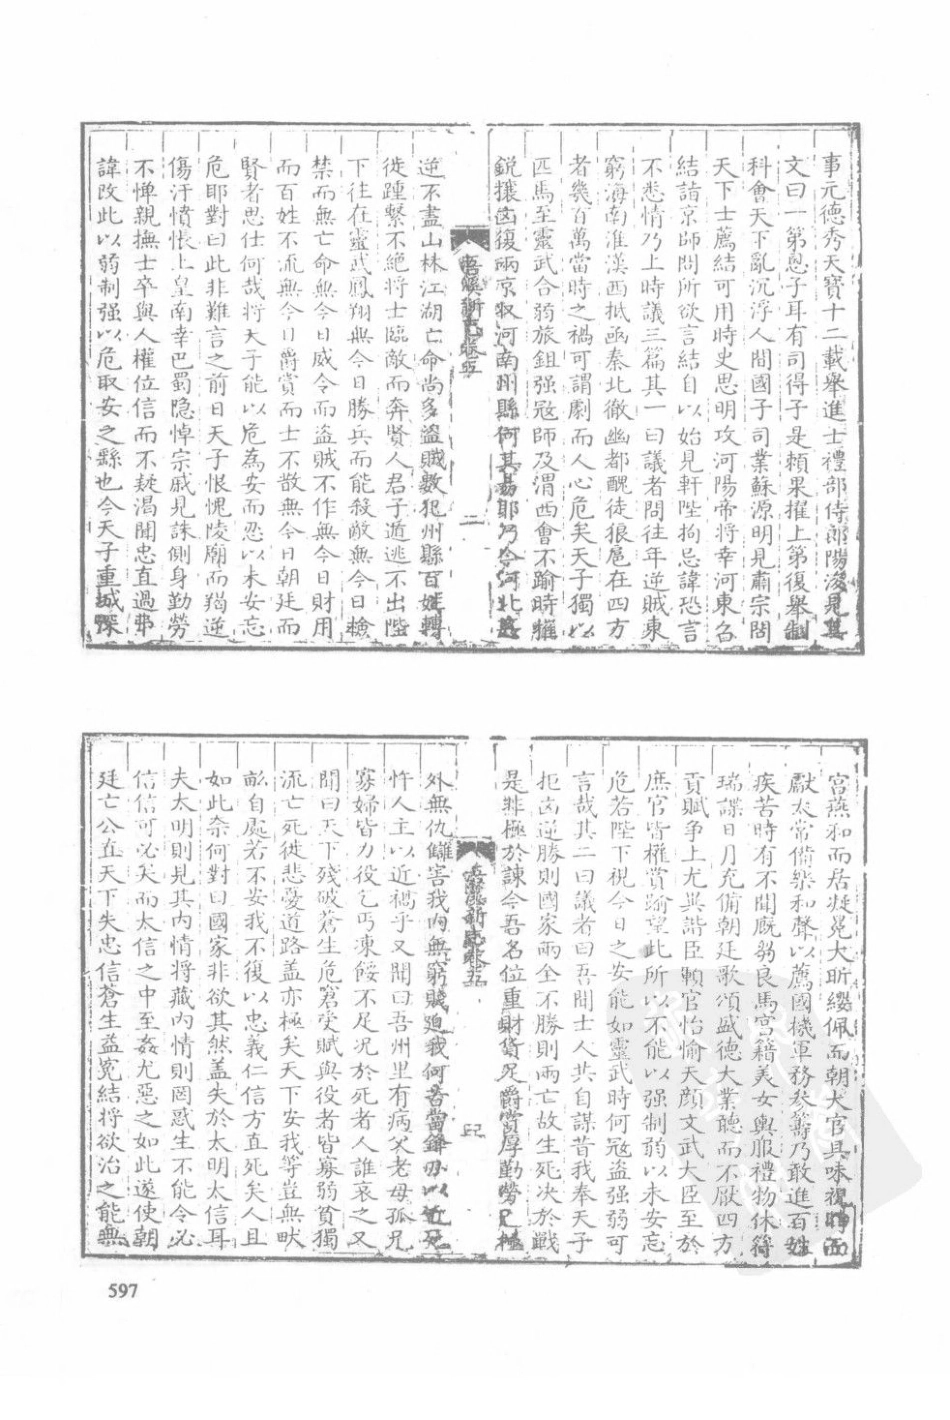 事元德秀天寶十二載舉進士禮部侍郎陽浚見其
文曰一第慁子耳有司得子是賴果擢上第復舉制
科會天下亂沉浮人間國子司業蘇源明見肅宗問
天下士薦結可用時史思明攻河陽帝將幸河東召
結詣京師問所欲言結自以始見軒陛拘忌諱恐言
不悉情乃上時議三篇其一曰議者問往年逆賊東
窮海南淮漢西抵函秦北徹幽都醜徒狼扈在四方
者幾百萬當時之禍可謂劇而人心危矣天子獨以
匹馬至靈武合弱旅鉏强寇師及渭西會不踰時摧
銳攘凶復兩京收河南州縣何其易耶乃今河北姦
逆不盡山林江湖亡命尚多盜賊數犯州縣百姓轉
徙踵繫不絕將士臨敵而奔賢人君子遁逃不出陛
下往在靈武鳳翔無今日勝兵而能殺敵無今日檢
禁而無亡命無今日威令而盜賊不作無今日財用
而百姓不流無今日爵賞而士不散無今日朝廷而
賢者思仕何哉將天子能以危為安而忍以未安忘
危耶對曰此非難言之前日天子恨愧陵廟而羯逆
傷汙憤悵上皇南幸巴蜀隐悼宗戚見誅側身勤勞
不憚親撫士卒與人權位信而不疑渴聞忠直過弗
諱改此以弱制强以危取安之繇也今天子重城深
宫燕和而居凝冕大昕纓佩而朝大官具味視時而
獻太常備樂和聲以薦國機軍務叅籌乃敢進百姓
疾苦時有不聞厩芻良馬宫籍美女輿服禮物休符
瑞諜日月充備朝廷歌頌盛德大業聽而不厭四方
貢賦争上尤異諧臣顐官怡愉天顔文武大臣至於
庶官皆權賞踰望此所以不能以强制弱以未安忘
危若陛下視今日之安能如靈武時何寇盜强弱可
言哉其二曰議者曰吾聞士人共自謀昔我奉天子
拒凶逆勝則國家兩全不勝則兩亡故生死决於戰
是非極於諫今吾名位重財貨足爵賞厚勤勞已極
外無仇讎害我内無窮賤迫我何苦當鋒刃以近死
忤人主以近禍乎又聞曰吾州里有病父老母孤兄
寡婦皆力役乞丐凍餒不足况於死者人誰哀之又
聞曰天下殘破蒼生危窘受賦與役者皆寡弱貧獨
流亡死徙悲憂道路盖亦極矣天下安我等豈無畎
畝自處若不安我不復以忠義仁信方直死矣人且
如此奈何對曰國家非欲其然盖失於太明太信耳
夫太明則見其内情將藏内情則罔惑生不能令必
信信可必矣而太信之中至姦尤惡之如此遂使朝
廷亡公直天下失忠信蒼生益寃結將欲治之能無
597